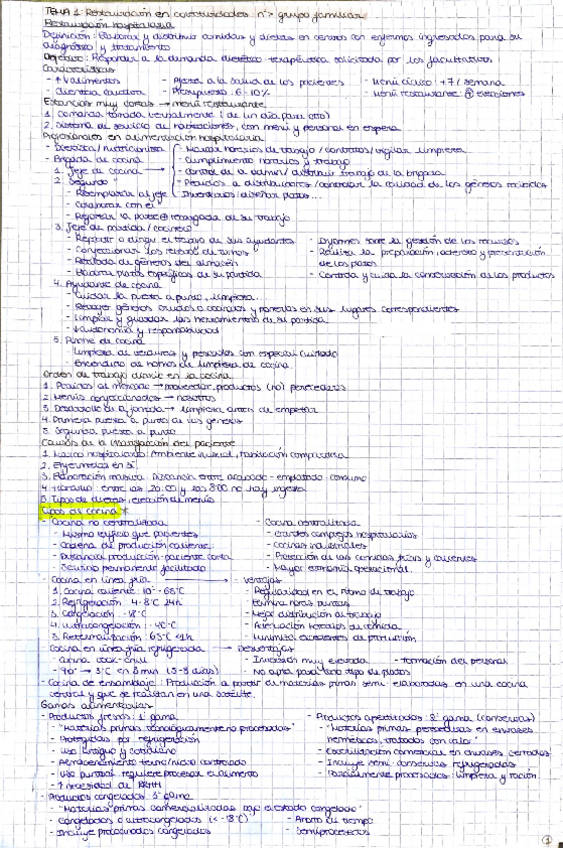 TEMA 1: Restauración en colectividades n> grupo familiar
Restauración hospitalaria
Definición: Elaborar y distribuir comidas y dietas en centros con enfermos ingresados para su
diagnóstico y tratamiento
Objetivo: Responder a la demanda dietético-terapéutica solicitada por los facultativos
Características
- Ajuste a la salud de los pacientes
- Menú cíclico: +7/semana
- Clientela cautiva
- Presupuesto: 6-10%
- Menú restaurante: elecciones
Estancias muy cortas → menú restaurante
1. Comanda tomada verbalmente (de un día para otro)
2. Sistema de servicio de habitaciones, con menú y personal en espera
Profesionales en alimentación hospitalaria
- Dietista/nutricionista
- Marcar horarios de trabajo/contratos/vigilar limpieza
- Brigada de cocina
- Cumplimiento horarios y trabajo
1. Jefe de cocina
- Control de la admin/distribuir trabajo de la brigada
2. Segundo "
- Pedidos a distribuidores/controlar la calidad de los géneros recibidos
- Reemplazar al jefe
- Inventarios/diseñar platos...
- Colaborar con él
- Registrar la parte de su trabajo
3. Jefe de partida/cocinero
- Repartir o dirigir el trabajo de sus ayudantes
- Informes sobre la gestión de los recursos
- Confeccionar los relevos de turnos
- Realiza la preparación, aderezo y presentación
de los platos
- Retirada de géneros del almacén
- Elaborar platos específicos de su partida
- Controla y cuida la conservación de los productos
4. Ayudante de cocina
- Cuidar la puesta a punto, limpieza...
- Recoger géneros crudos o cocinados y ponerlos en sus lugares correspondientes
- Limpiar y guardar las herramientas de su partida
- Autonomía y responsabilidad
5. Pinche de cocina
- Limpieza de verduras y pescados con especial cuidado
- Encendido de hornos de limpieza de cocina
Orden de trabajo diario en la cocina
1. Pedidos al mercado → proveedor, productos (no) perecederos
2. Menús confeccionados → nosotros
3. Desarrollo de la jornada → limpieza antes de empezar
4. Primera puesta a punto de los géneros
5. Segunda puesta a punto
Causas de la del paciente
1. Marco hospitalario: Ambiente inusual, tramitación complicada
2. Enfermedad en sí
3. Elaboración masiva: Distancia entre acabado - emplatado - consumo
4. Horario: entre las 20:00 y las 8:00 no hay ingesta
5. Tipos de dietas: creación de menús
Tipos de cocina *
- Cocina no centralizada
- Cocina centralizada
- Mismo edificio que pacientes
- Grandes complejos hospitalarios
- Cadena de producción caliente
- Cocinas industriales
- Distancia producción-paciente corta
- Protección de las comidas frías y calientes
- Servicio permanente facilitado
- Mayor economía operacional
- Cocina en línea fría → Ventajas
1. Cocina caliente: 10º-65ºC
- Regularidad en el ritmo de trabajo
2. Refrigeración 4-8ºC 24h
- Elimina horas punta
3. Congelación: -18ºC
- Mejor distribución de trabajo
4. Ultracongelación: -40ºC
5. Retermalización: 65ºC <1h
- Minimiza excedentes de producción
- Cocina en línea fría refrigerada → Desventajas
- Cocina cook-chill
- Inversión muy elevada
- Formación del personal
- 70º → 3ºC en 8 min (5-8 días)
- No apta para todo tipo de platos
- Cocina de ensamblaje: Producción a partir de materias primas semi-elaboradas en una cocina
central y que se realizan en una satélite.
Gamas alimentarias
- Productos frescos: 1ª gama
- Productos apertizados: 2ª gama (conservas)
- "Materias primas tecnológicamente no procesadas"
- "Materias primas percederas en envases
herméticos, tratados con calor"
- Protegidas por refrigeración
- Uso antiguo y cotidiano
- Comercialización comercial en envases cerrados
- Almacenamiento termo/hidro controlado
- Incluye semi-conservas refrigeradas
- Uso puntual: requiere procesar el alimento
- Parcialmente procesados: limpieza y ración
- ↑ necesidad de RRHH
- Productos congelados: 3ª gama
- "Materias primas comercializadas bajo el estado congelado"
- Congelados o ultracongelados (<-18ºC)
- Ahorro de tiempo
- Incluye precocinados congelados
- Semiprocesados
1